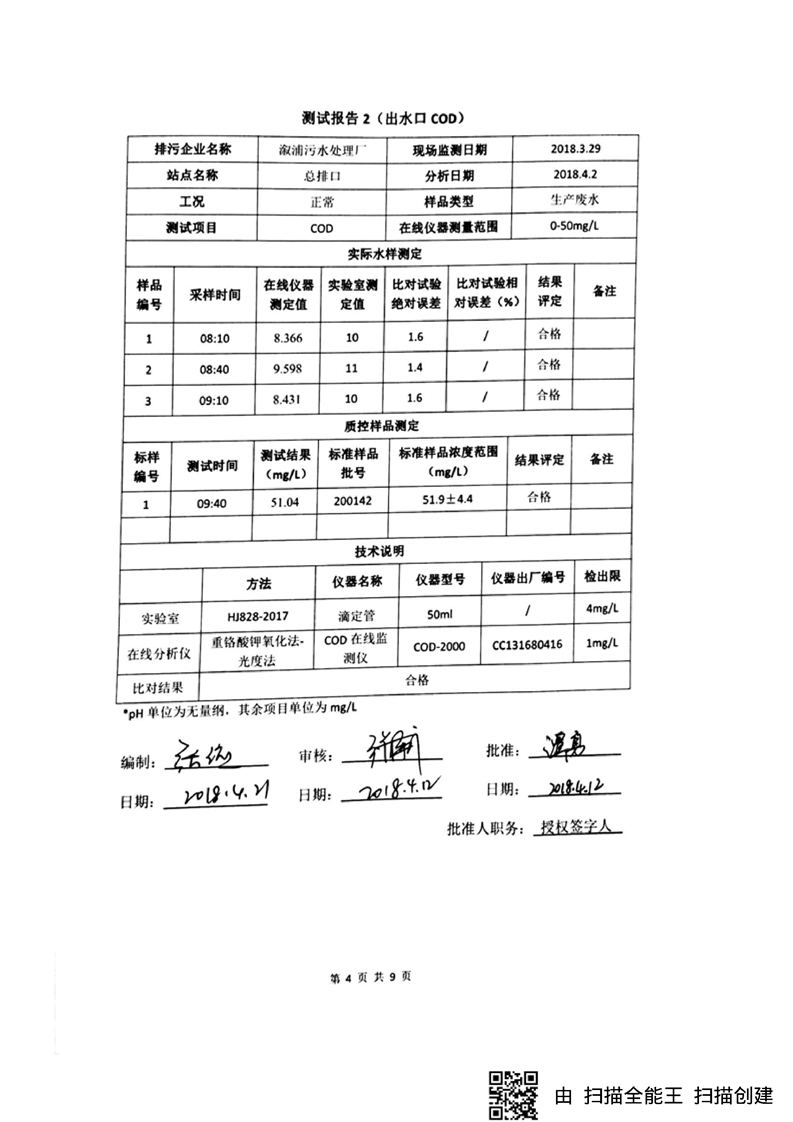 测试报告2（出水口COD）
排污企业名称 溆浦污水处理厂 现场监测日期 2018.3.29
站点名称 总排口 分析日期 2018.4.2
工况 正常 样品类型 生产废水
测试项目 COD 在线仪器测量范围 0-50mg/L
实际水样测定
样品编号 采样时间 在线仪器测定值 实验室测定值 比对试验绝对误差 比对试验相对误差（%） 结果评定 备注
1 08:10 8.366 10 1.6 / 合格
2 08:40 9.598 11 1.4 / 合格
3 09:10 8.431 10 1.6 / 合格
质控样品测定
标样编号 测试时间 测试结果（mg/L） 标准样品批号 标准样品浓度范围（mg/L） 结果评定 备注
1 09:40 51.04 200142 51.9±4.4 合格
技术说明
方法 仪器名称 仪器型号 仪器出厂编号 检出限
实验室 HJ828-2017 滴定管 50ml / 4mg/L
在线分析仪 重铬酸钾氧化法-光度法 COD在线监测仪 COD-2000 CC131680416 1mg/L
比对结果 合格
*pH单位为无量纲，其余项目单位为mg/L
编制： 审核： 批准：
日期：2018.4.21 日期：2018.4.12 日期：2018.4.12
批准人职务：授权签字人
第 4 页 共 9 页
由 扫描全能王 扫描创建